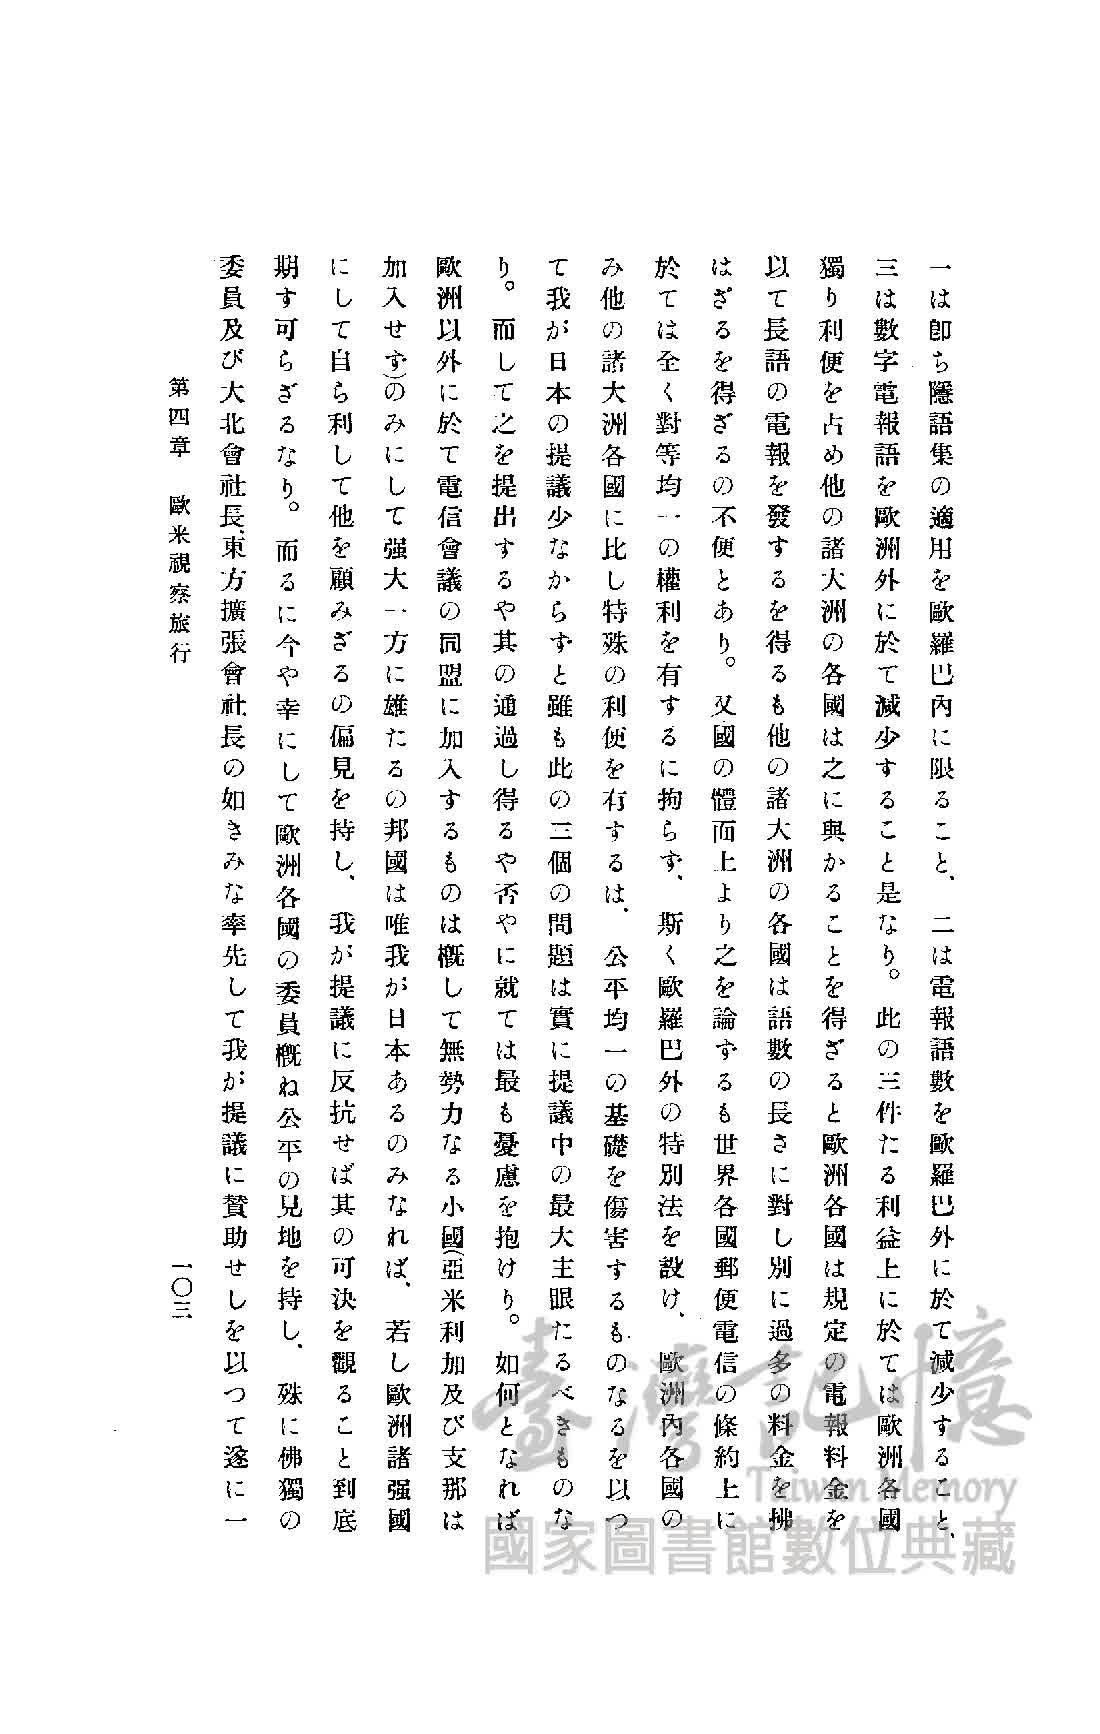 一は卽ち隱語集の適用を歐羅巴內に限ること、二は電報語數を歐羅巴外に於て減少すること、
三は數字電報語を歐洲外に於て減少すること是なり。此の三件たる利益上に於ては歐洲各國
獨り利便を占め他の諸大洲の各國は之に與かることを得ざると歐洲各國は規定の電報料金を
以て長語の電報を發するを得るも他の諸大洲の各國は語數の長さに對し別に過多の料金を拂
はざるを得ざるの不便とあり。又國の體面上より之を論ずるも世界各國郵便電信の條約上に
於ては全く對等均一の權利を有するに拘らず、斯く歐羅巴外の特別法を設け、歐洲內各國の
み他の諸大洲各國に比し特殊の利便を有するは、公平均一の基礎を傷害するものなるを以つ
て我が日本の提議少なからずと雖も此の三個の問題は實に提議中の最大主眼たるべきものな
り。而して之を提出するや其の通過し得るや否やに就ては最も憂慮を抱けり。如何となれば
歐洲以外に於て電信會議の同盟に加入するものは槪して無勢力なる小國(亞米利加及び支那は
加入せず)のみにして强大一方に雄たるの邦國は唯我が日本あるのみなれば、若し歐洲諸强國
にして自ら利して他を顧みざるの偏見を持し、我が提議に反抗せば其の可決を觀ること到底
期す可らざるなり。而るに今や幸にして歐洲各國の委員槪ね公平の見地を持し、殊に佛獨の
委員及び大北會社長、東方擴張會社長の如きみな率先して我が提議に贊助せしを以つて遂に一
第四章　歐米視察旅行　一〇三
臺灣記憶
Taiwan Memory
國家圖書館數位典藏